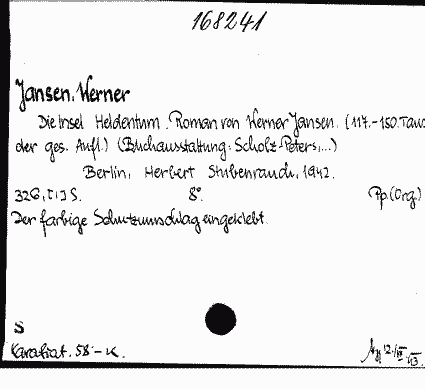 168241
Jansen, Werner
Die Insel Heldentum. Roman von Werner Jansen. (117.-150. Taus
der ges. Aufl.) (Buchausstattung: Scholz-Peters,...)
Berlin, Herbert Stubenrauch, 1942.
326, [1] S. 8°. Pp. (Org.)
Der farbige Schutzumschlag eingeklebt.
S
58 - K. 12. III 43.